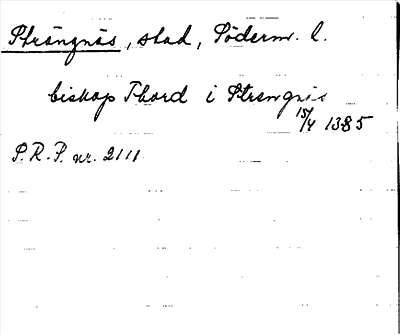 Strängnäs, stad, Söderm. l.
biskop Thord i Strengnis
15/4 1385
S.R.P. nr. 2111